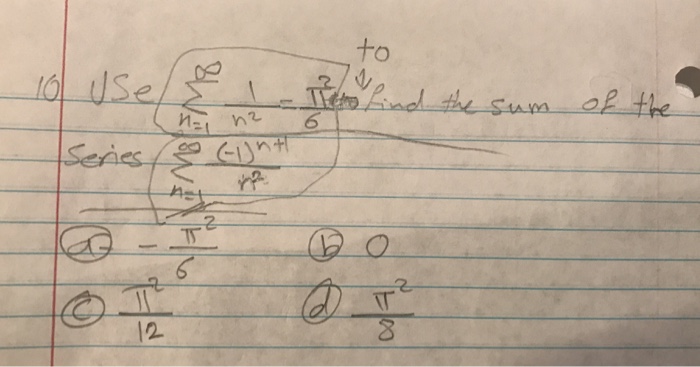 to
10 Use \sum_{n=1}^{\infty} \frac{1}{n^2} = \frac{\pi^2}{6} find the sum of the
Series \sum_{n=1}^{\infty} \frac{(-1)^{n+1}}{n^2}
(a) -\frac{\pi^2}{6} (b) 0
(c) \frac{\pi^2}{12} (d) \frac{\pi^2}{8}